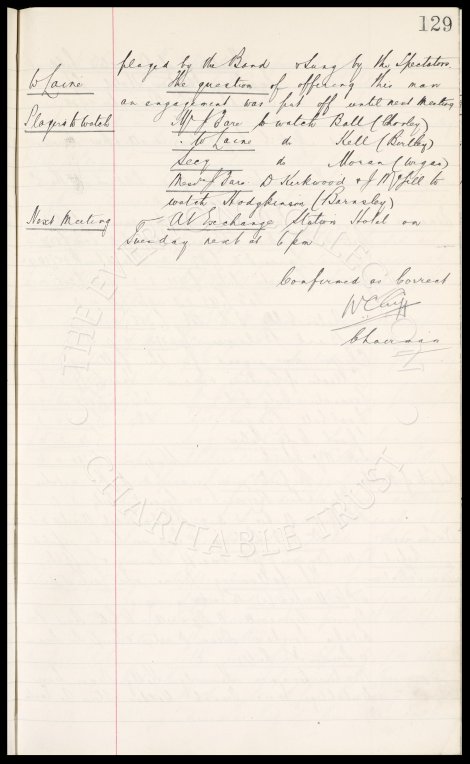 129
played by the Band & Sung by the Spectators.
W Laine The question of offering this man
an engagement was put off until next meeting
Players to watch Mr J Tare to watch Ball (Chorley)
W Laine do Kell (Burtley)
Secy do Moran (Wigan)
Messrs J Tare. D Kirkwood & J McGill to
watch Hodgkinson (Barnsley)
Next Meeting At Exchange Station Hotel on
Tuesday next at 6 pm
Confirmed as Correct
W C Cuff
Chairman
THE EVERTON COLLECTION
CHARITABLE TRUST